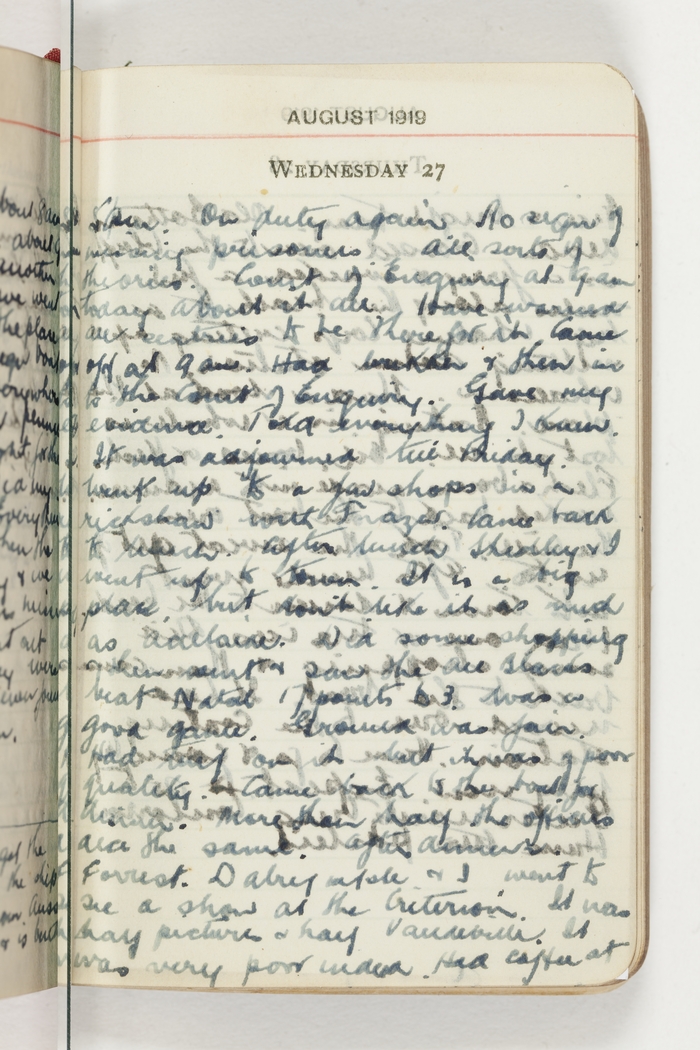 AUGUST 1919
WEDNESDAY 27
On duty again. No sign of
missing prisoners. All sorts of
theories. Court of Enquiry at 9am
today about it all. Have warned
all sentries to be there for it. Came
off at 9am. Had breaker & then in
to the Court of Enquiry. Gave my
evidence. Told everything I knew.
It was adjourned till Friday.
Went up to a few shops in a
rickshaw with Frazer. Came back
to lunch. After lunch Shirley & I
went up to town. It is a big
place but don't like it as much
as Adelaide. Did some shopping
& then went & saw the All Blacks
beat Natal 17 points to 3. Was a
good game. Ground was fair.
Had grass on it but it was of poor
quality. Came back to the boat for
dinner. More than half the officers
did the same. After dinner
Forrest, Dalrymple & I went to
see a show at the Criterion. It was
half pictures & half Vaudeville. It
was very poor indeed. Had coffee at